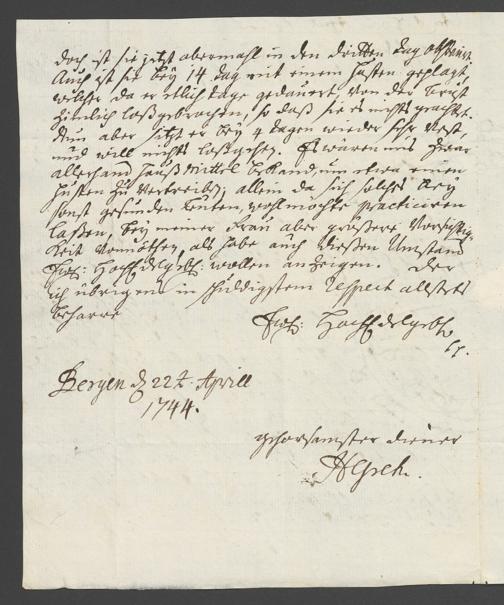 doch ist sie jetzt abermahl in den dritten Tag obstruirt.
Auch ist sie bey 14 Tag mit einem Husten geplagt,
welcher da er etlich Tage gedauert von der Brust
zimlich loßgebrochen, so daß sie es nichts geachtet.
Nun aber sitzt er bey 4 Tagen wieder sehr vest,
und will nichts loßgehen. Es waren mir zwar
allerhand Hauß Mittel bekand, um etwa einen
Husten zu vertreiben; allein da sich solches bey
sonst gesunden Leuten, wohl möchte practiciren
laßen, bey meiner Frau aber größere Vorsichtig-
keit vonnöthen, als habe auch dießen Umstand
Ew: HochEdelgebh: wollen anzeigen. Der
ich übrigens in schuldigstem Respect allstets
beharre
Ew: HochEdelgebh
Bergen d 22t. Aprill
1744.
gehorsamster Diener